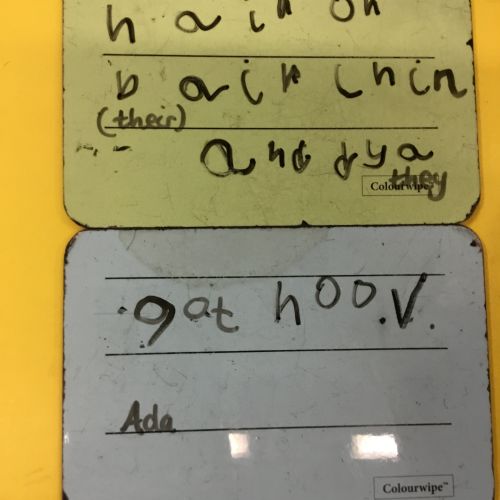 h a i r on
b a i k i n i n
(their)
and d y a
they
Colourwipe
got hoo.v.
Ada
Colourwipe™